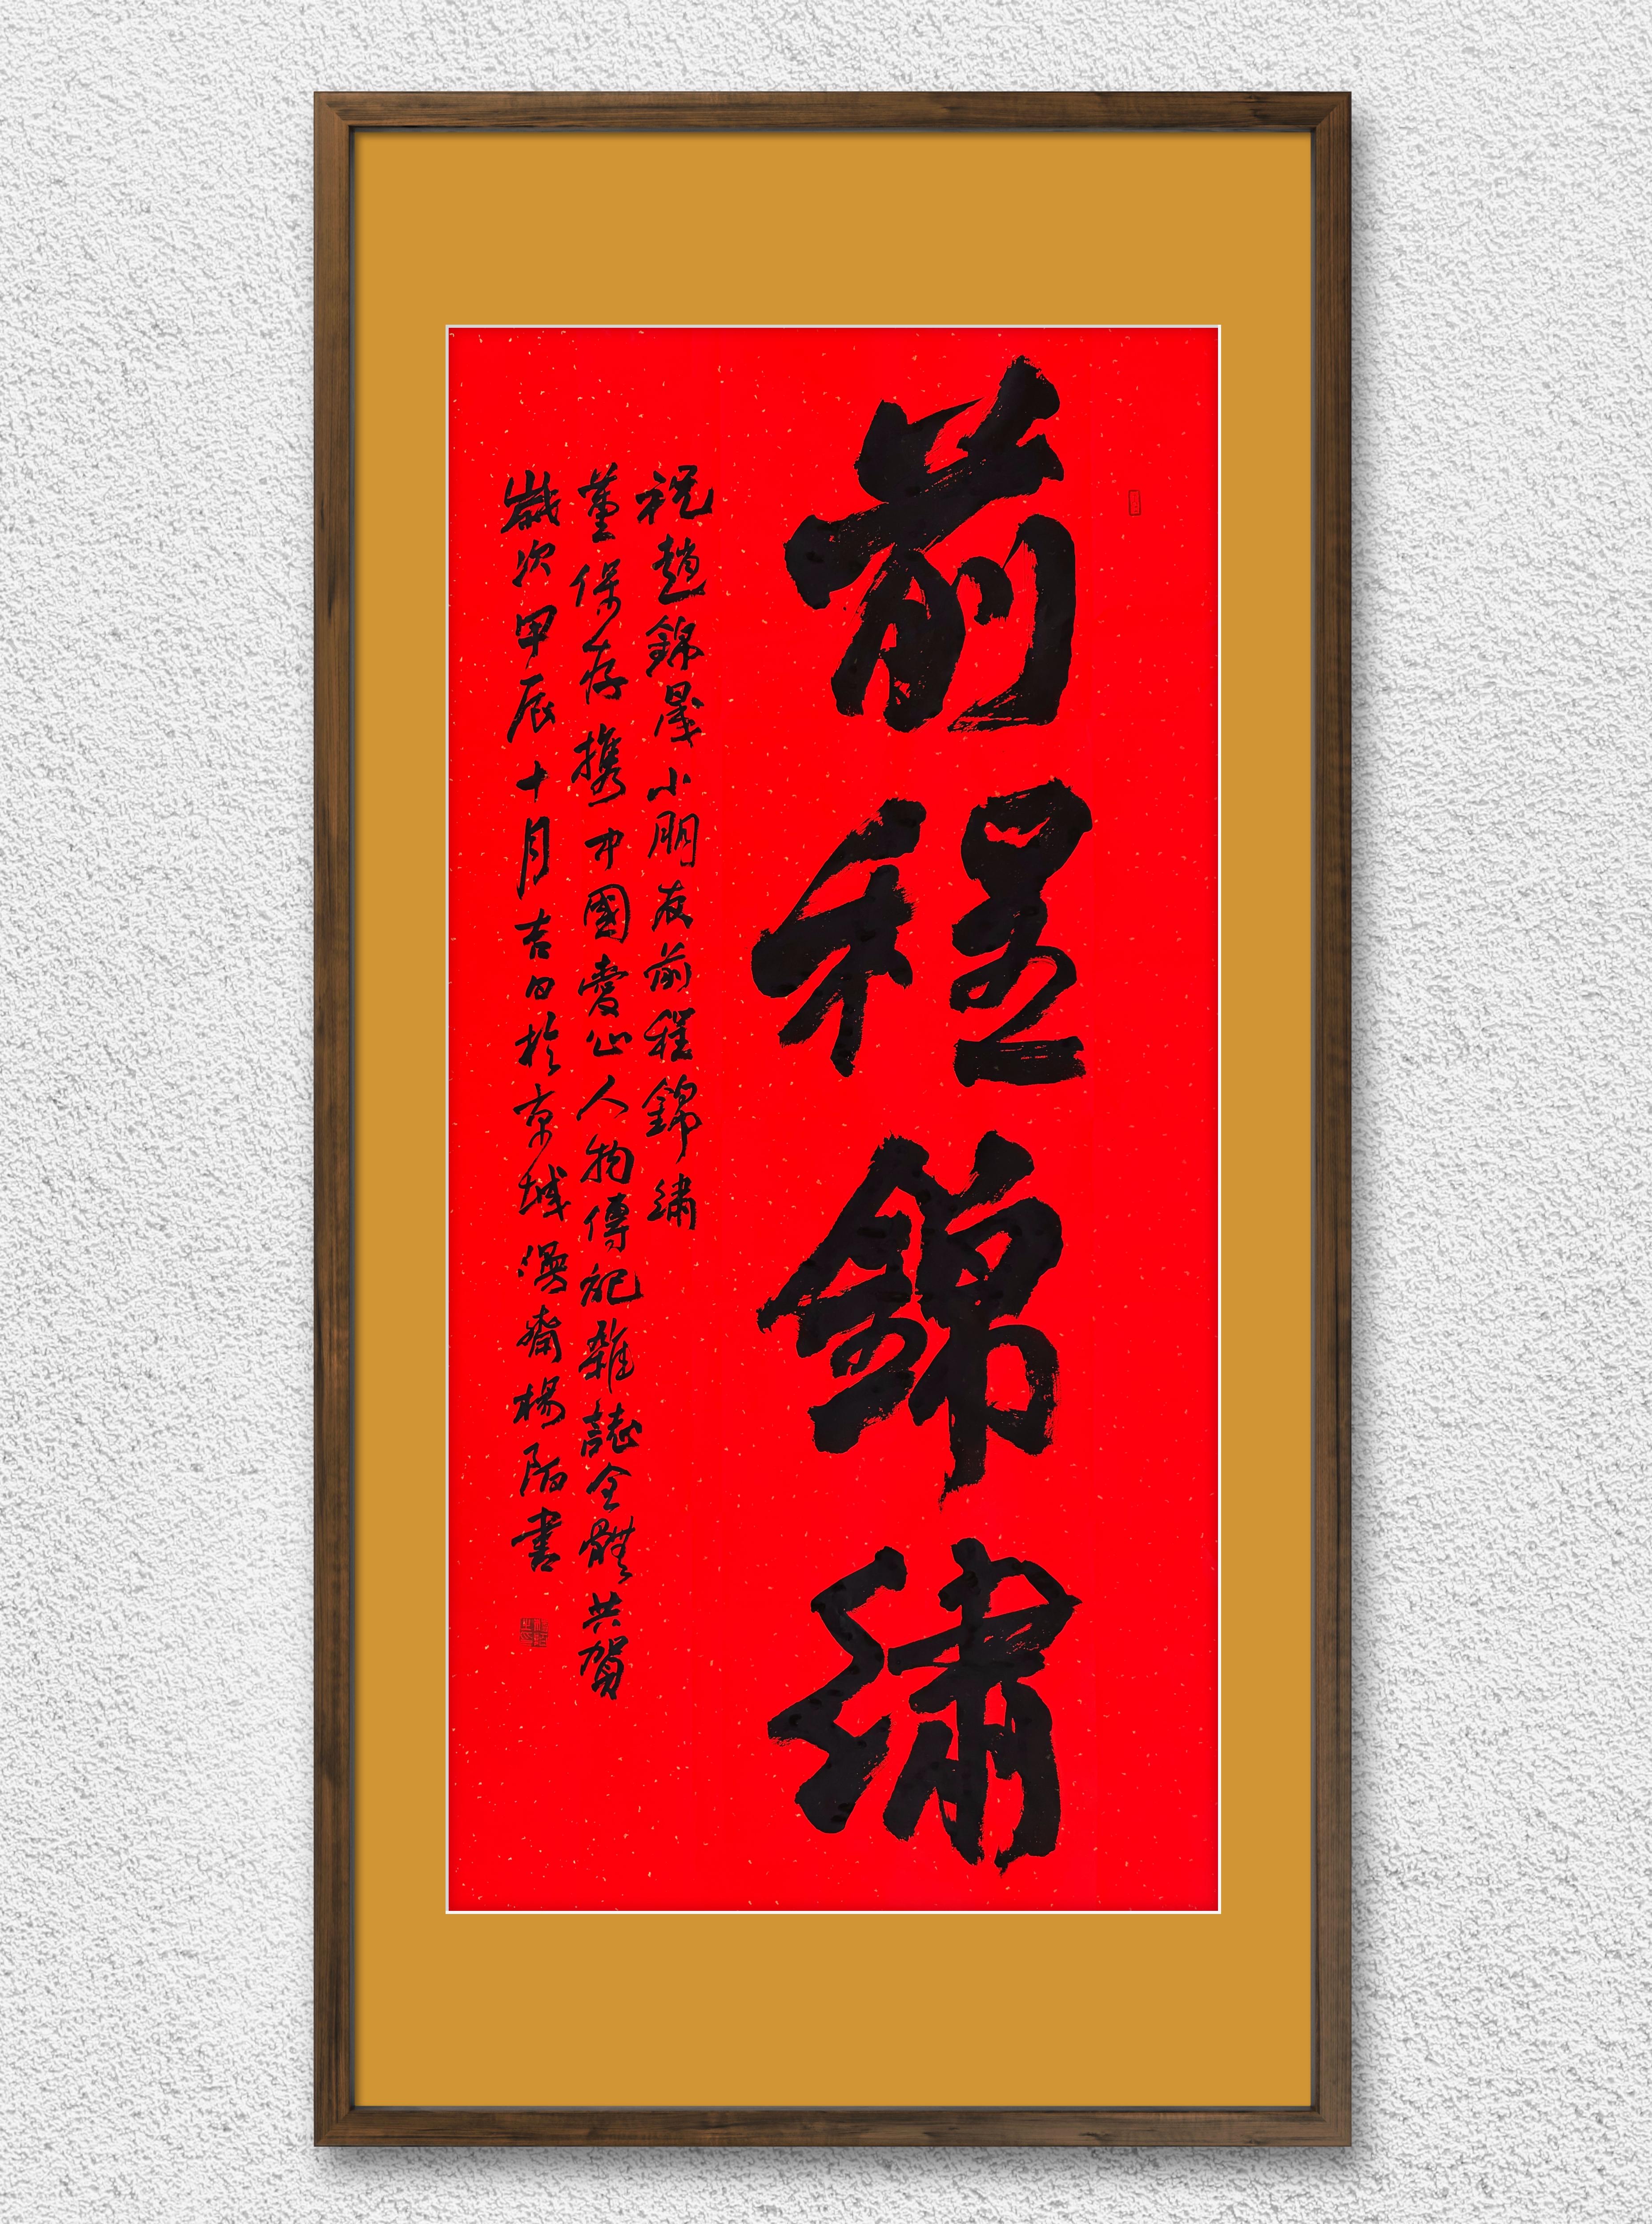 前程錦繡
祝趙錦晟小朋友前程錦繡
董保存携中國愛心人物傳記雜誌全體共賀
歲次甲辰十月吉日於京城漫齋楊陌書